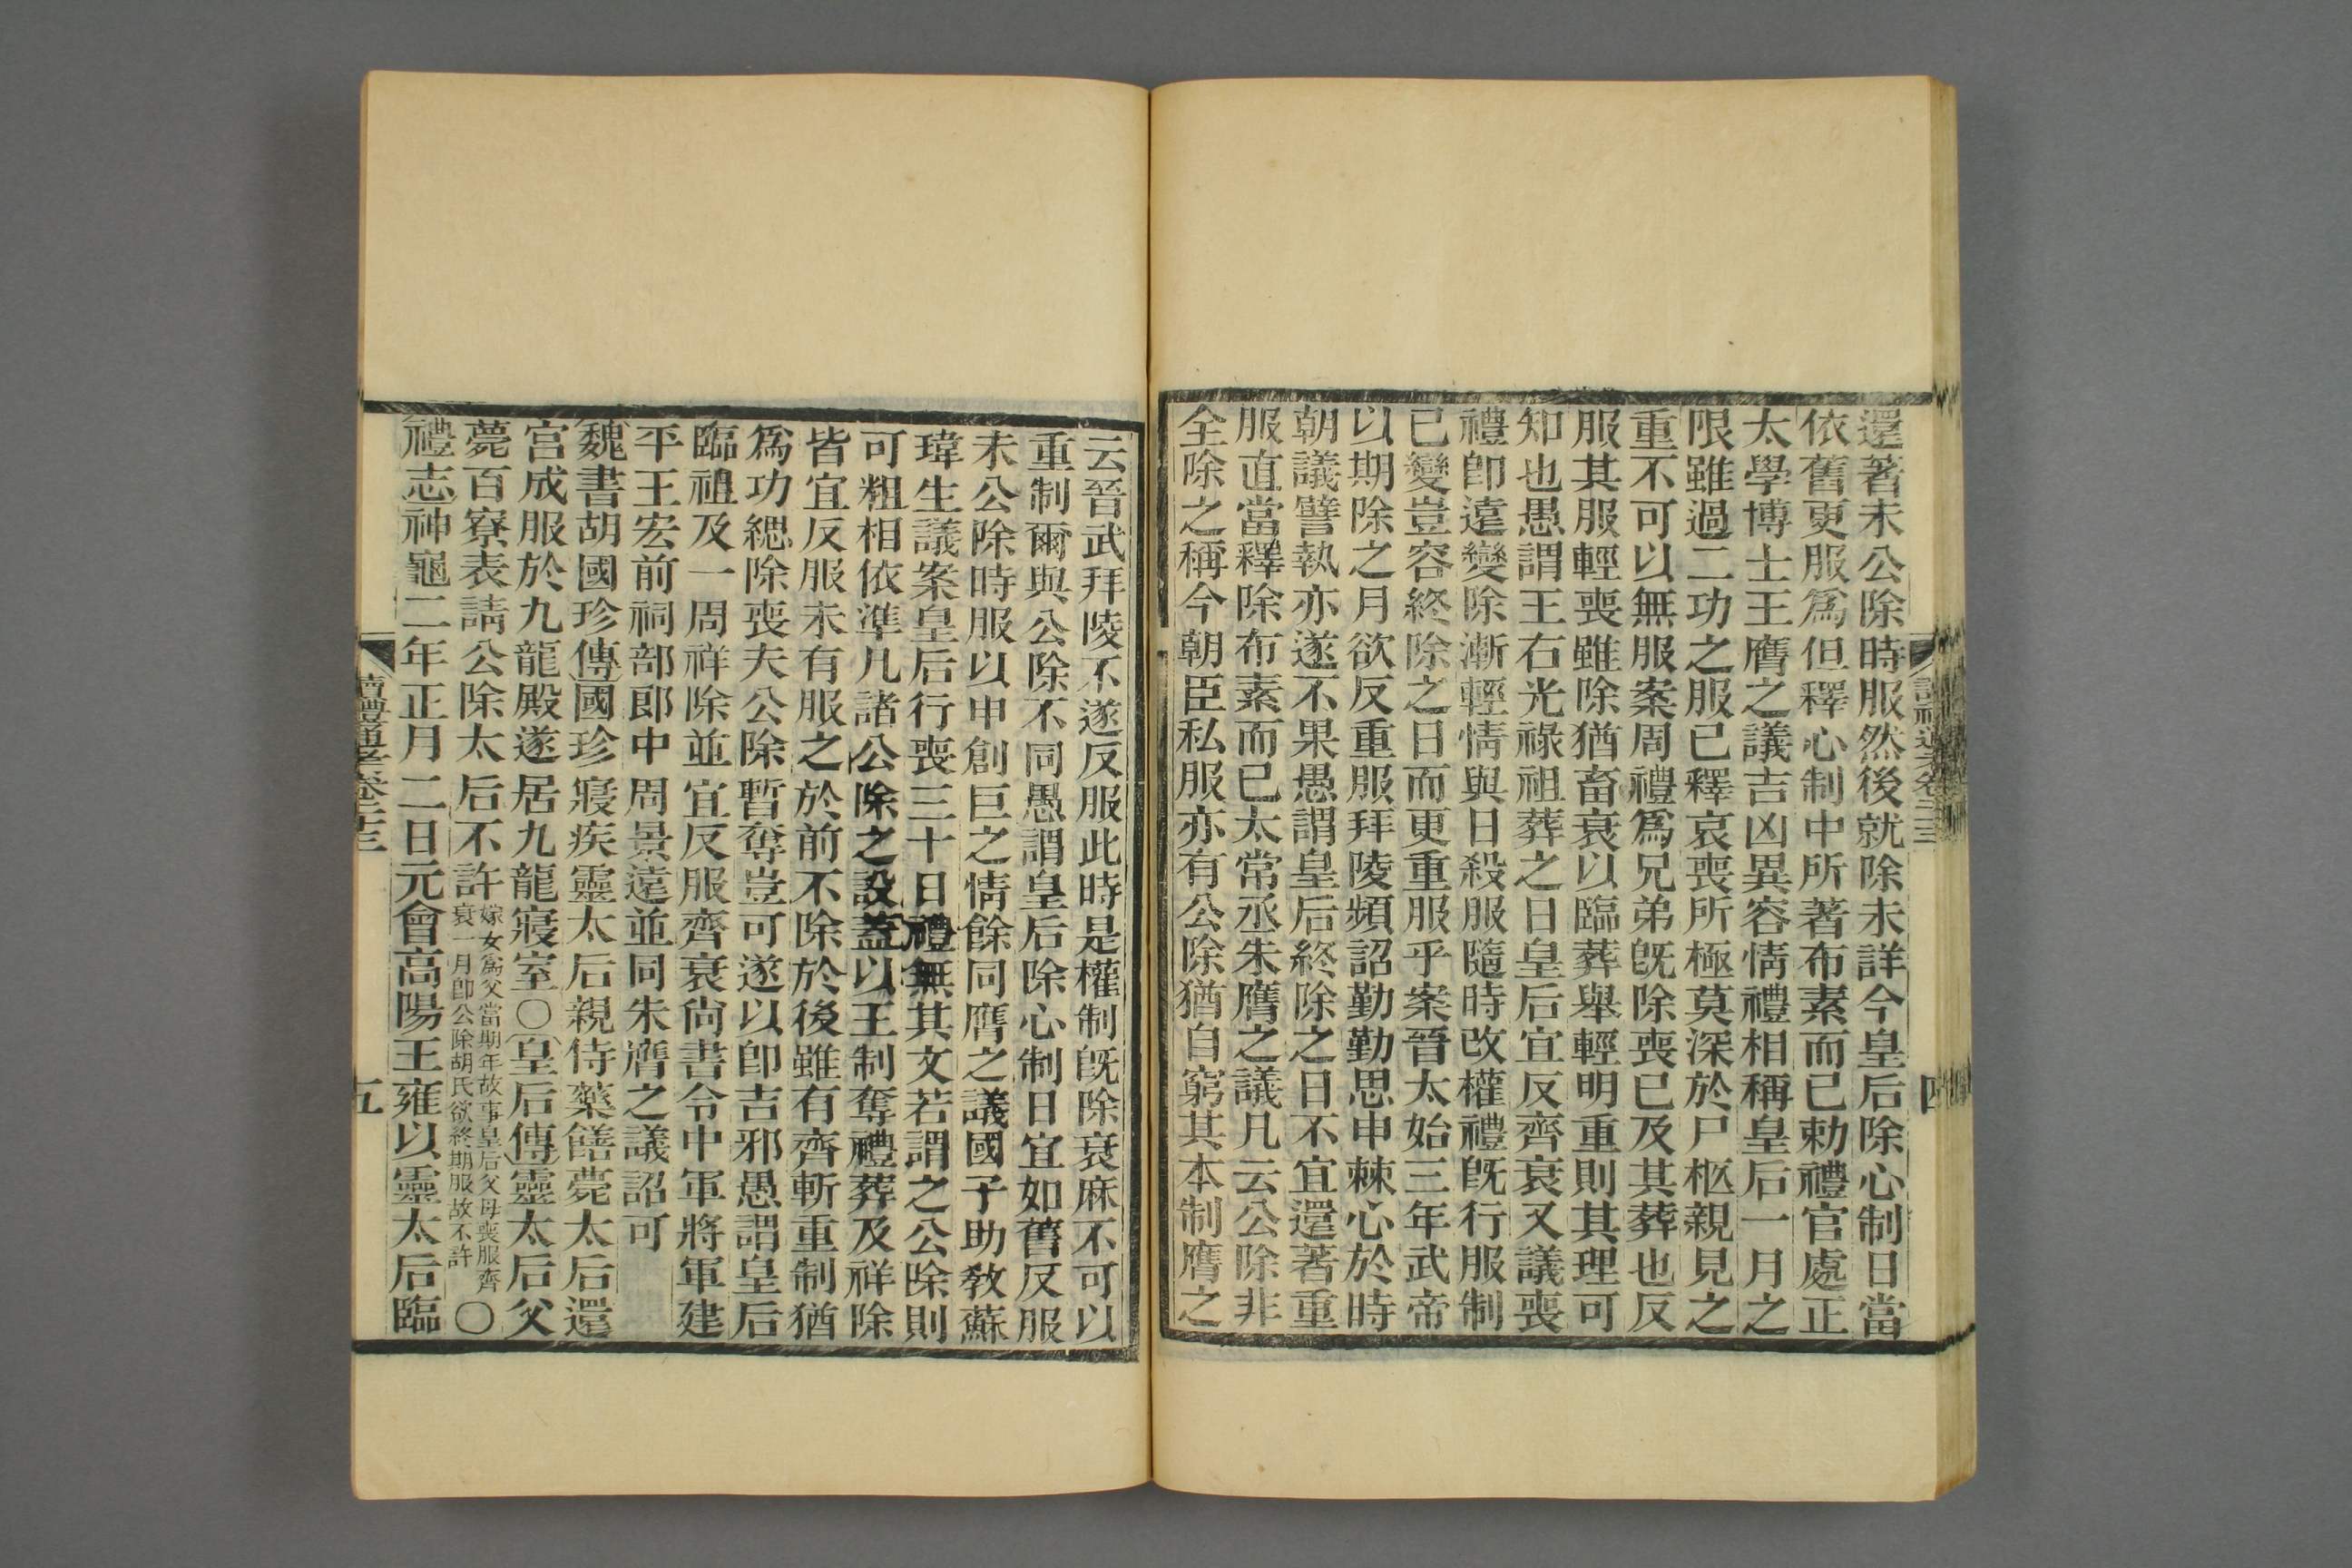 還著未公除時服然後就除未詳今皇后除心制日當
依舊更服爲但釋心制中所著布素而已勅禮官處正
太學博士王膺之議吉凶異容情禮相稱皇后一月之
限雖過二功之服已釋哀喪所極莫深於尸柩親見之
重不可以無服案周禮爲兄弟旣除喪已及其葬也反
服其服輕喪雖除猶畜衰以臨葬舉輕明重則其理可
知也愚謂王右光祿祖葬之日皇后宜反齊衰又議喪
禮卽遠變除漸輕情與日殺服隨時改權禮旣行服制
已變豈容終除之日而更重服乎案晉太始三年武帝
以期除之月欲反重服拜陵頻詔勤勤思申棘心於時
朝議譬執亦遂不果愚謂皇后終除之日不宜還著重
服直當釋除布素而已太常丞朱膺之議凡云公除非
全除之稱今朝臣私服亦有公除猶自窮其本制膺之
云晉武拜陵不遂反服此時是權制旣除衰麻不可以
重制爾與公除不同愚謂皇后除心制日宜如舊反服
未公除時服以申創巨之情餘同膺之議國子助敎蘇
瑋生議案皇后行喪三十日禮無其文若謂之公除則
可粗相依準凡諸公除之設蓋以王制奪禮葬及祥除
皆宜反服未有服之於前不除於後雖有齊斬重制猶
爲功緦除喪夫公除暫奪豈可遂以卽吉邪愚謂皇后
臨祖及一周祥除並宜反服齊衰尙書令中軍將軍建
平王宏前祠部郞中周景遠並同朱膺之議詔可
魏書胡國珍傳國珍寢疾靈太后親侍藥饍薨太后還
宮成服於九龍殿遂居九龍寢室〇皇后傳靈太后父
薨百寮表請公除太后不許嫁女爲父當期年故事皇后父母喪服齊
衰一月卽公除胡氏欲終期服故不許〇
禮志神龜二年正月二日元會高陽王雍以靈太后臨
讀禮通考卷二十三
五